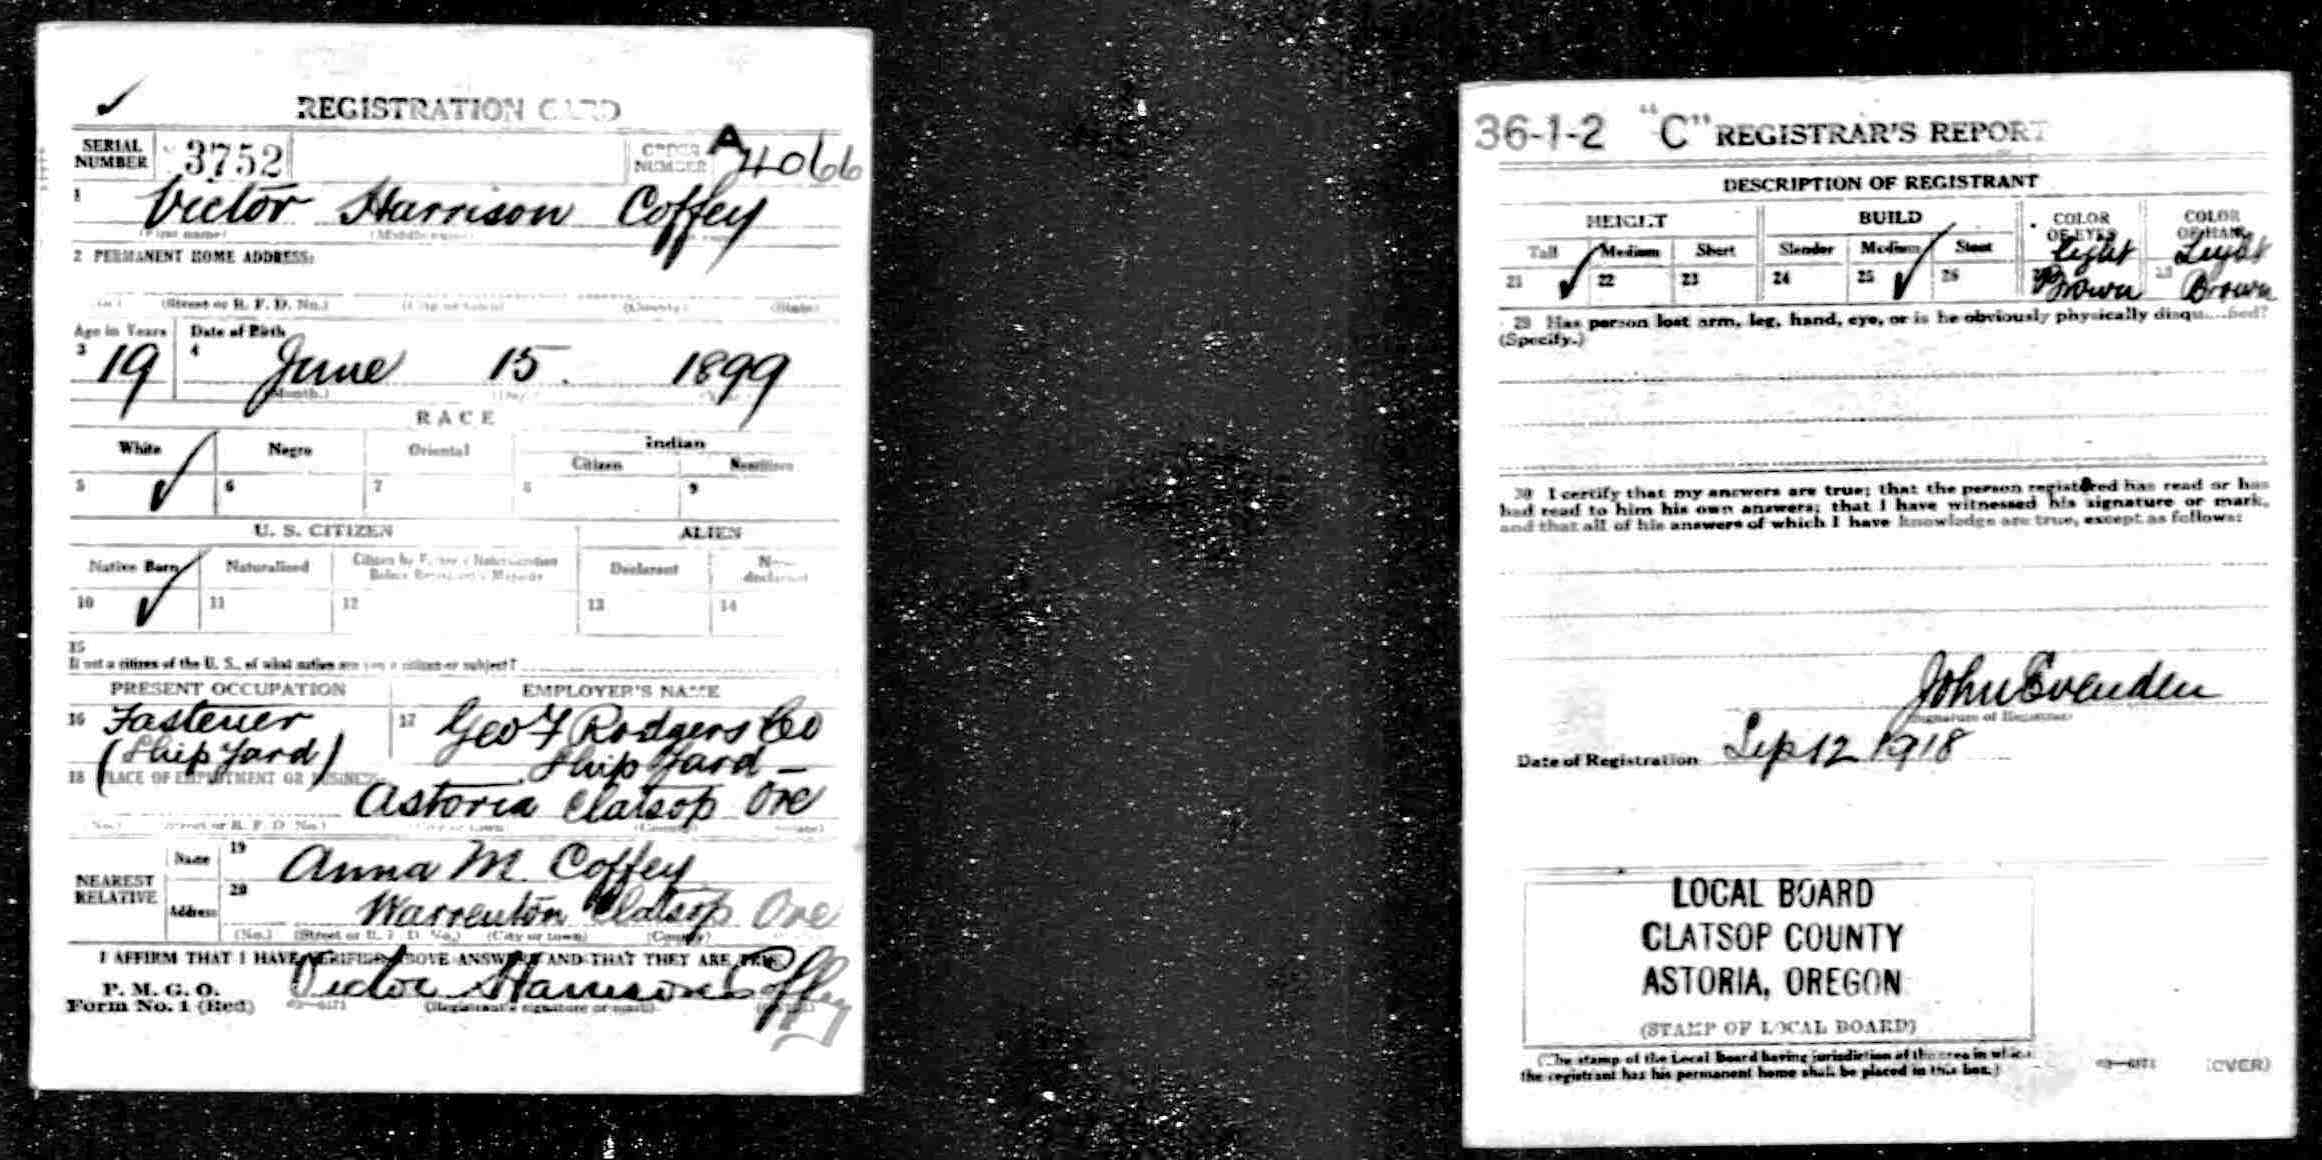 REGISTRATION CARD
SERIAL NUMBER 3752 ORDER NUMBER A 4066
1 Victor Harrison Coffey
(First name) (Middle name)
2 PERMANENT HOME ADDRESS:
(No.) (Street or R. F. D. No.) (City or town) (County) (State)
Age in Years Date of Birth
3 19 4 June 15. 1899
(Month.) (Day.) (Year.)
RACE
White Negro Oriental Indian
Citizen Noncitizen
5 ✓ 6 7 8 9
U. S. CITIZEN ALIEN
Native Born Naturalized Citizen by Father's Naturalization Before Registrant's Majority Declarant Non-declarant
10 ✓ 11 12 13 14
15
If not a citizen of the U. S., of what nation are you a citizen or subject?
PRESENT OCCUPATION EMPLOYER'S NAME
16 Fastener 17 Geo F Rodgers Co
(Ship Yard) Ship Yard –
18 PLACE OF EMPLOYMENT OR BUSINESS:
Astoria Clatsop Ore
(No.) (Street or R. F. D. No.) (City or town) (County) (State)
NEAREST RELATIVE Name 19 Anna M. Coffey
Address 20 Warrenton Clatsop Ore
(No.) (Street or R. F. D. No.) (City or town) (County)
I AFFIRM THAT I HAVE VERIFIED ABOVE ANSWERS AND THAT THEY ARE TRUE
P. M. G. O.
Form No. 1 (Red) (Registrant's signature or mark) Victor Harrison Coffey
36-1-2 "C" REGISTRAR'S REPORT
DESCRIPTION OF REGISTRANT
HEIGHT BUILD COLOR OF EYES COLOR OF HAIR
Tall Medium Short Slender Medium Stout Light Light
21 ✓ 22 23 24 25 ✓ 26 Brown Brown
29 Has person lost arm, leg, hand, eye, or is he obviously physically disqualified?
(Specify.)
30 I certify that my answers are true; that the person registered has read or has
had read to him his own answers; that I have witnessed his signature or mark,
and that all of his answers of which I have knowledge are true, except as follows:
John Evenden
(Signature of Registrar)
Date of Registration Sep 12 1918
LOCAL BOARD
CLATSOP COUNTY
ASTORIA, OREGON
(STAMP OF LOCAL BOARD)
(The stamp of the Local Board having jurisdiction of the area in which
the registrant has his permanent home shall be placed in this box.)
(OVER)